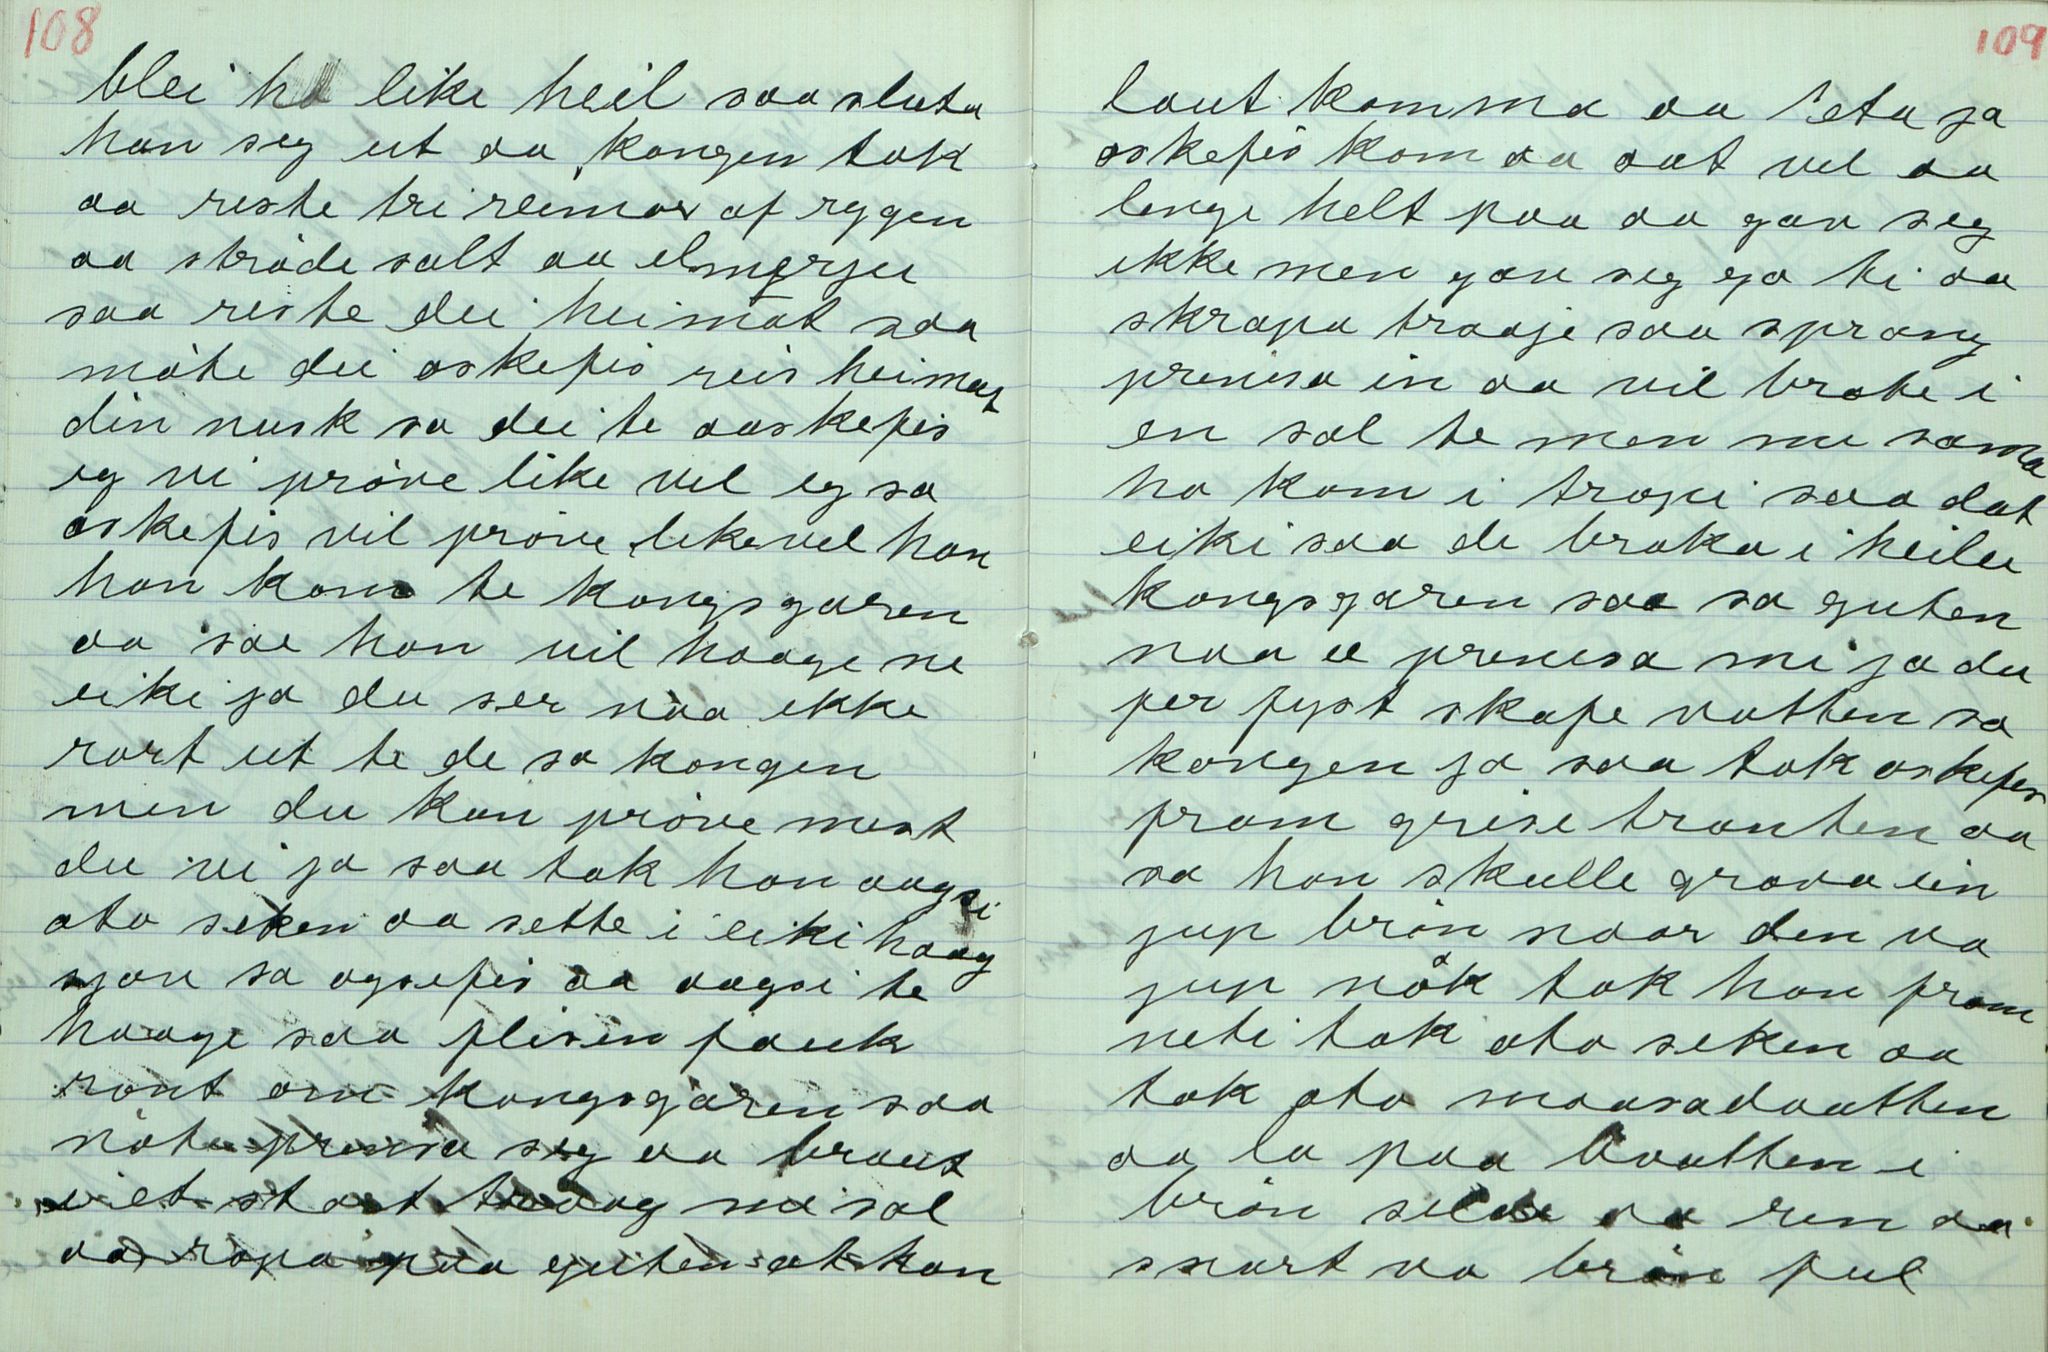 108
blei ho like heil saa sluta
han seg ut aa kongen tok
aa reste tri reimar af rygen
aa strøde salt aa elmyrju
saa reiste dei heimat saa
møte dei oskefis reis heimat
din nusk sa dei te aaskefis
eg vi prøve like vel eg sa
oskefis vil prøve likevel han
han kom te kongsgaren
aa sae han vil haage ne
eiki ja du ser naa ikke
rart ut te de sa kongen
men du kan prøve mest
du vi ja saa tok han aagsi
ato seken aa sette i eiki haag
sjøu sa ogsefis aa aagsi te
haage saa flisen fauk
ront om kongsgaren saa
nøtu prensa seg aa braut
eilt stort traag me sol
aa ropa paa guten at han
109
laut komma aa eta ja
oskefis kom aa aat vel aa
lenge helt paa aa gav seg
ikke men gav seg ga ti aa
skrapa traaje saa sprang
prensa in aa vil brote i
en sol te men me sama
ho kom i trapi saa dat
eiki saa de braka i heile
kongsgaren saa sa guten
naa e prensa mi ja du
fer fyst skafe vatten sa
kongen ja saa tok oskefis
fram grise tranten aa
sa han skulle grava ein
jup brøn naar den va
jup nåk tok han fram
neti tok ato seken aa
tok ato maasadaatten
aa la paa baatten i
brøn aa ren aa
snart va brøn ful